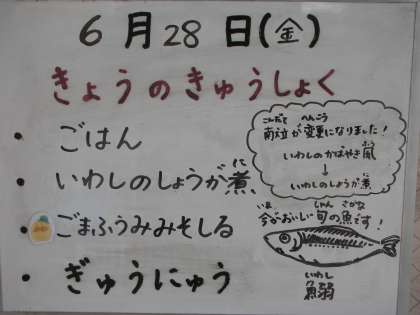 6月28日(金)
きょうのきゅうしょく
・ごはん
・いわしのしょうが煮
に
ごまふうみみそしる
・ぎゅうにゅう
こんだて へんこう
が変更になりました!
いわしのかばやき風
↓
いわしのしょうが煮
いま しゅん さかな
今がおいしい旬の魚です!
いわし
鰯